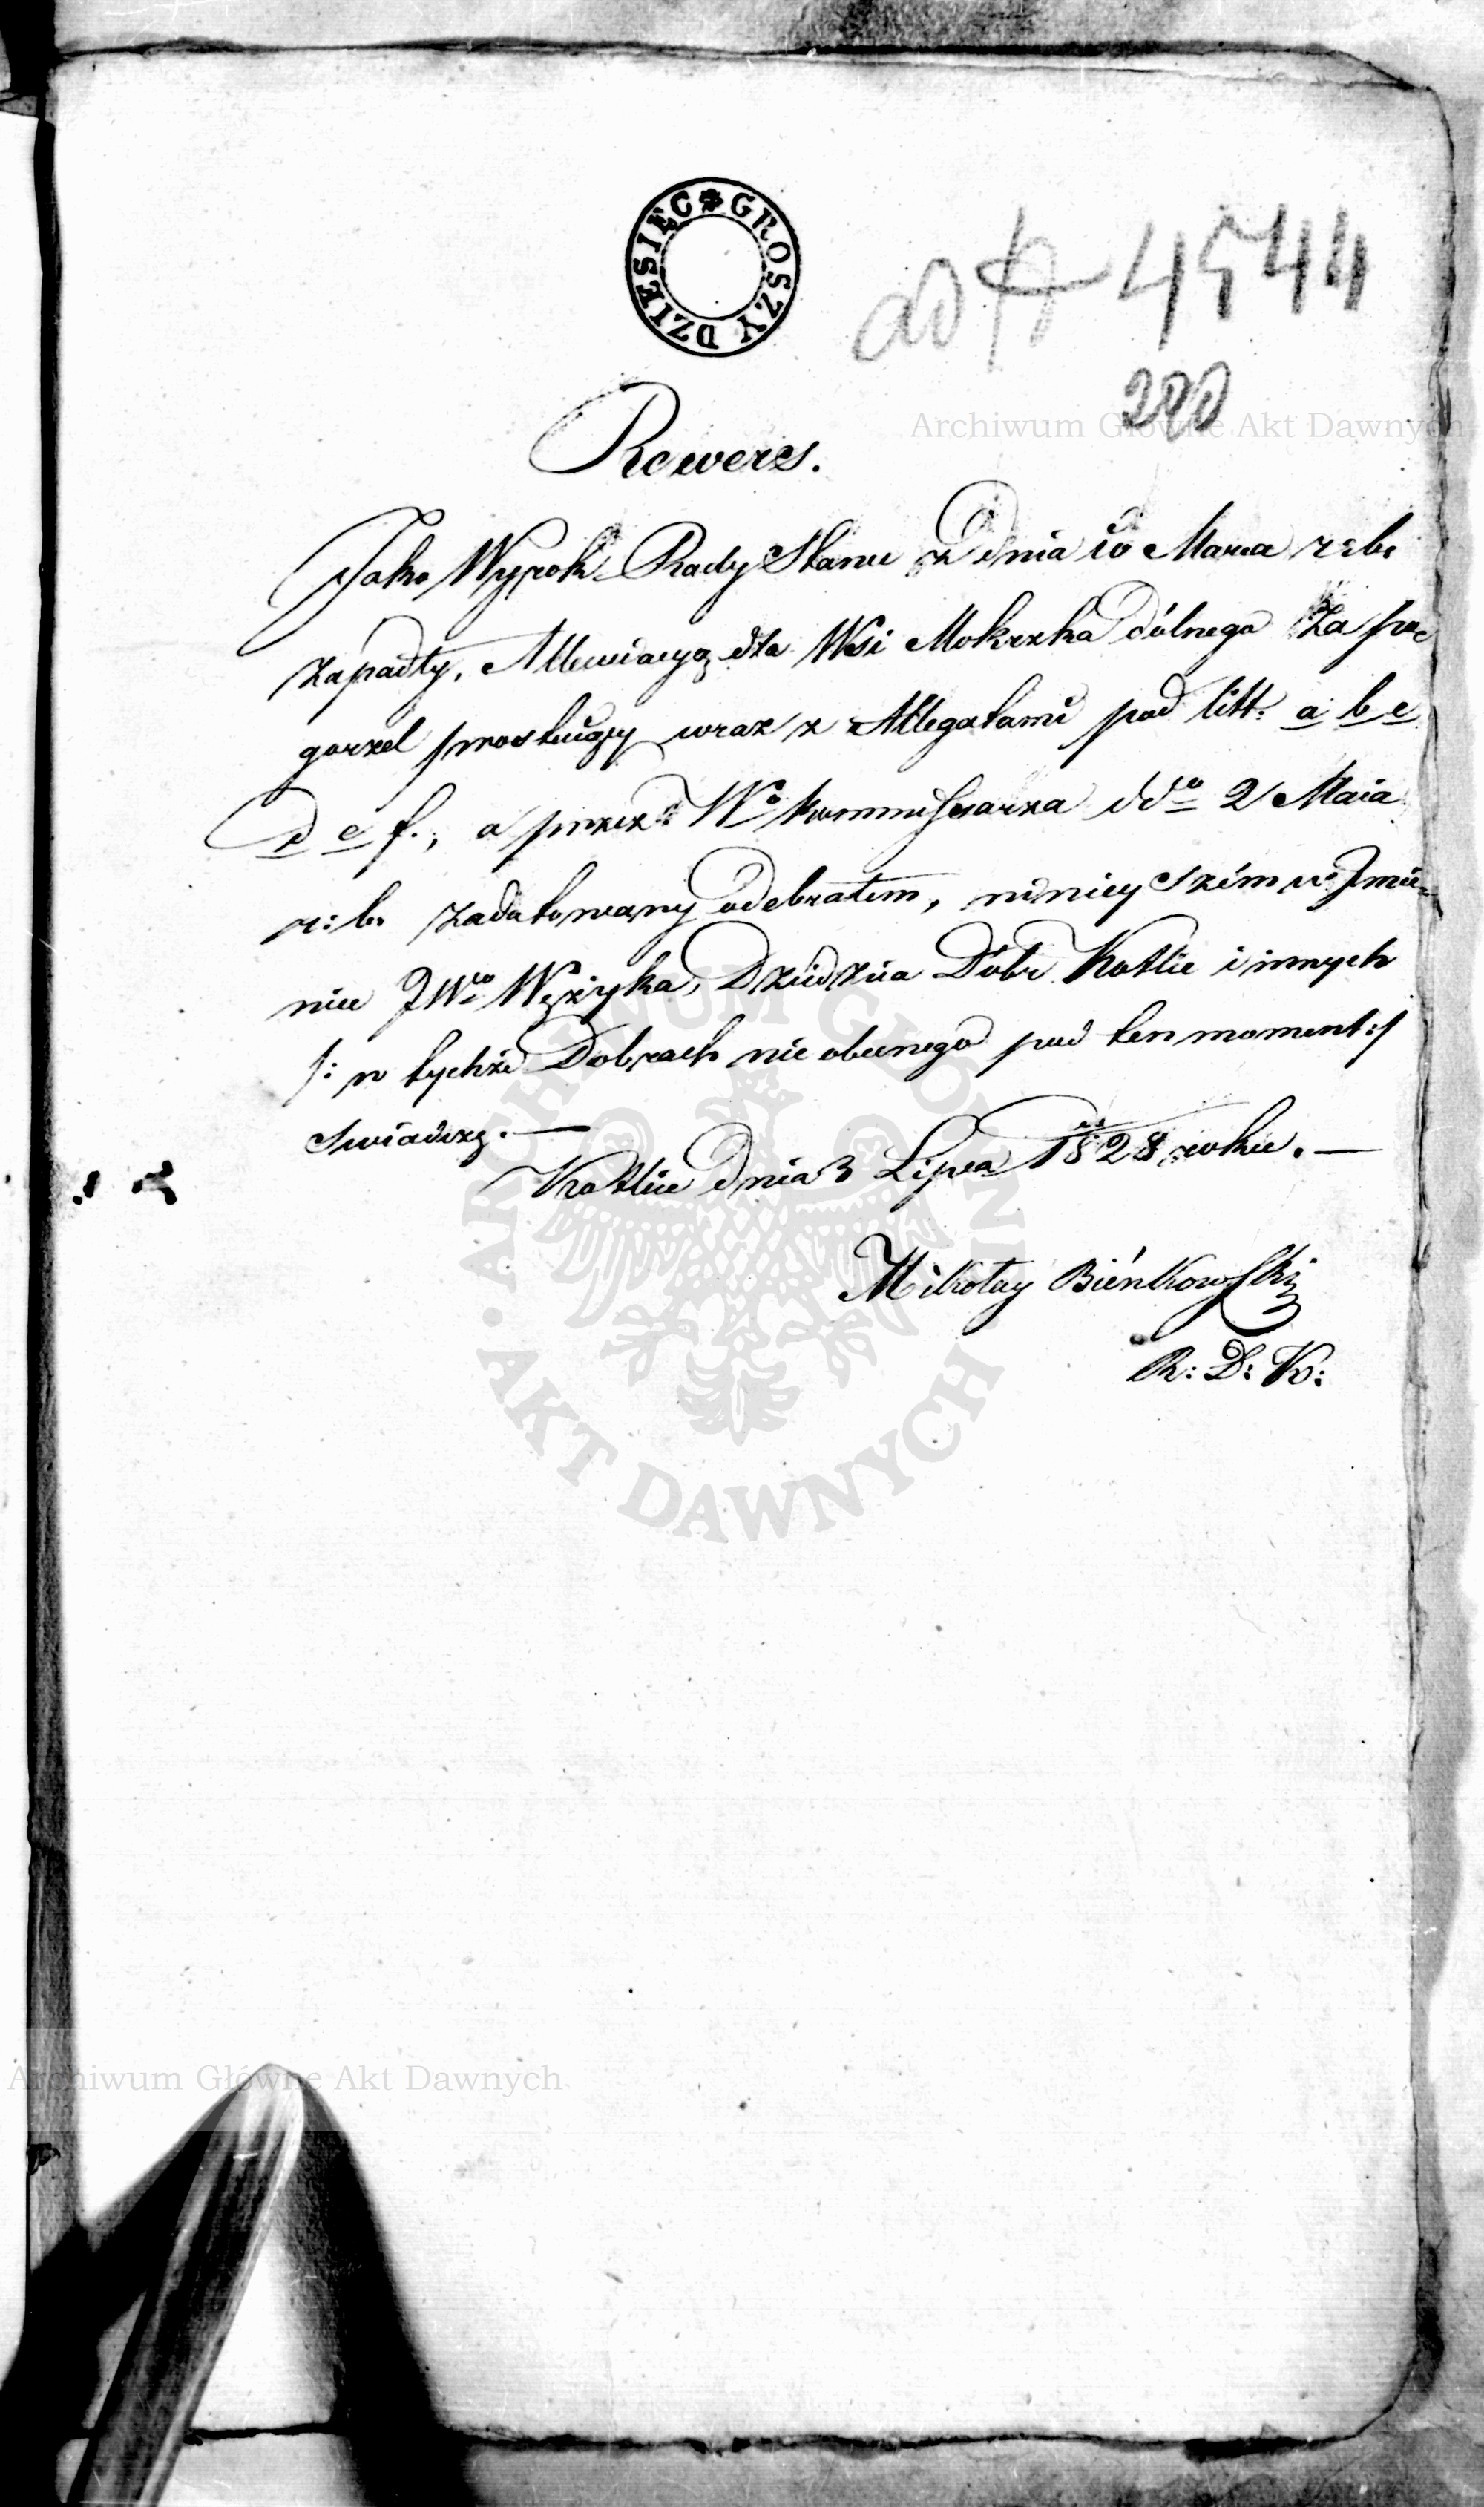 GROSZY DZIESIEC
ad # 4544
280
Archiwum Główne Akt Dawnych
Rewers.
Jako Wyrok Rady Stanu z dnia 10 Marca r: b:
zapadły, Allewiacyą dla Wsi Mokrska dólnego za po=
gorzel prostuiący wraz z Allegatami pod litt: a b c
d e f., a przez Wo kommissarza ddo 2 Maia
r: b. zadatowany odebrałem, ninieyszém w Jmie=
niu JWo Wężyka, Dziedzica Dóbr Kotlic i innych
/: w tychże Dobrach nie obecnego pod ten moment :/
świadczę. —
Kotlice dnia 3 Lipca 1828 roku. —
Mikołay Bieńkowski
R: D: K:
ARCHIWUM GŁÓWNE AKT DAWNYCH
Archiwum Główne Akt Dawnych